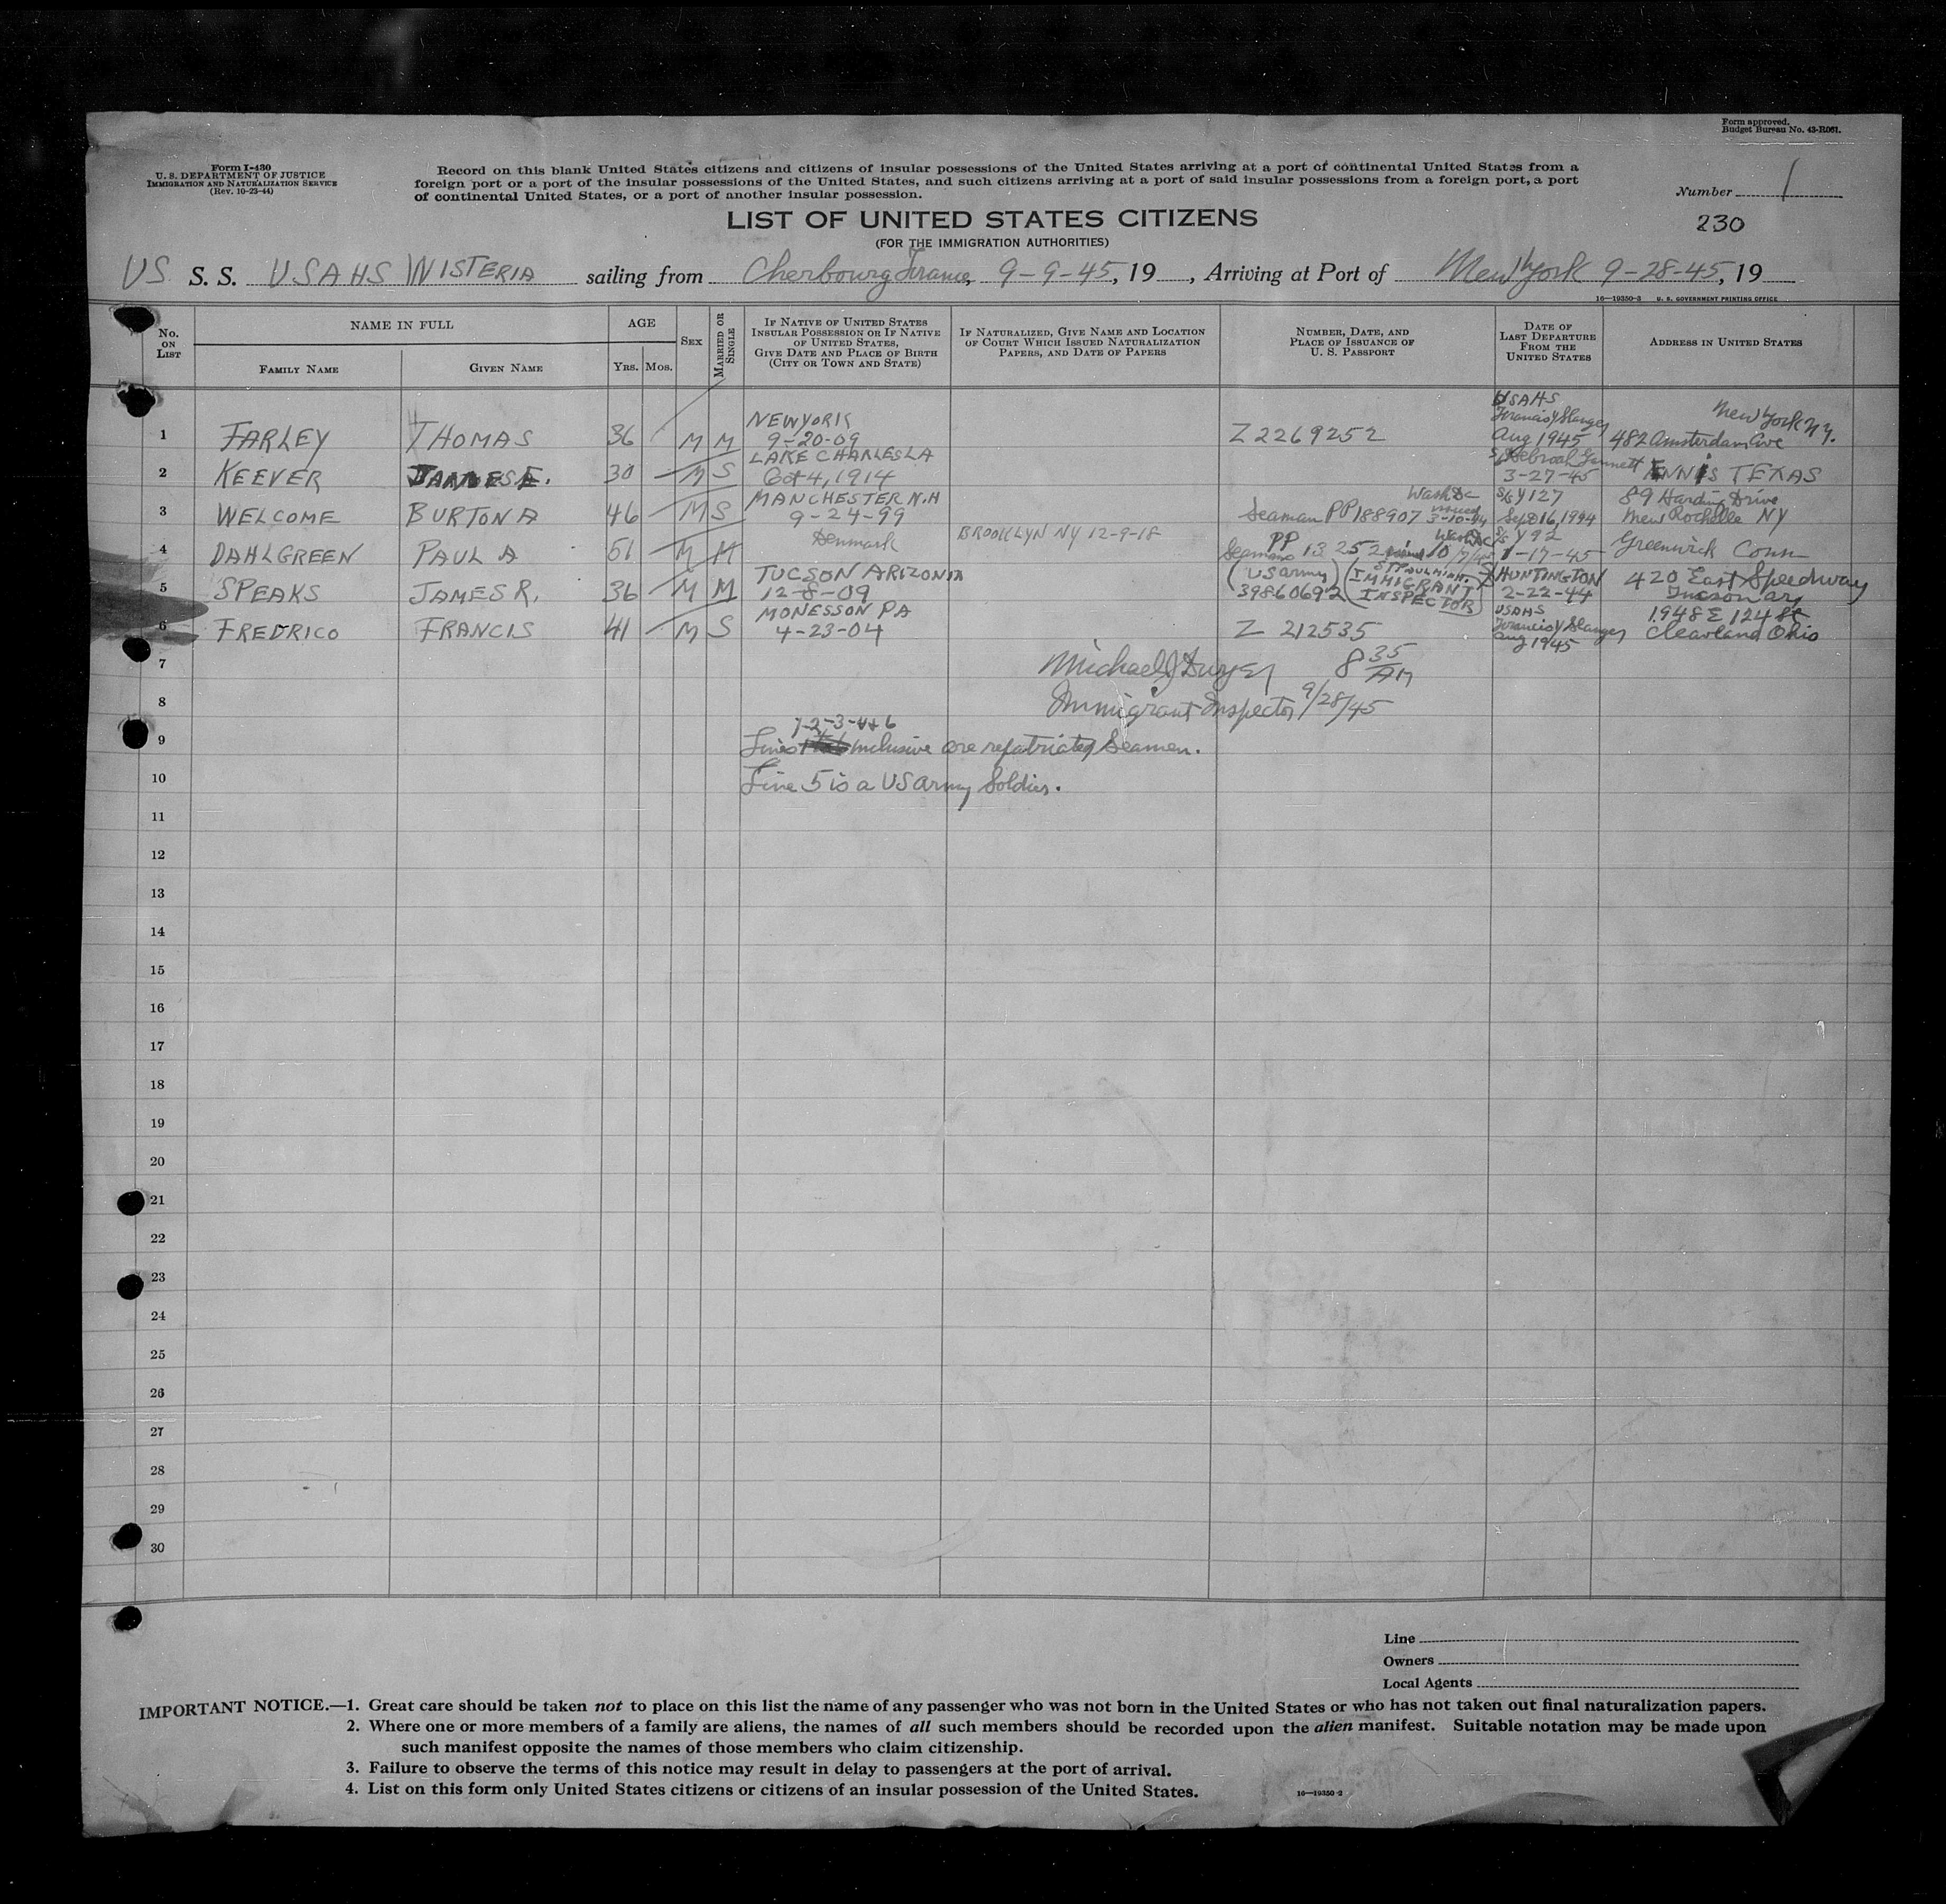 Form approved.
Budget Bureau No. 43-R061.
Form I-430
U. S. DEPARTMENT OF JUSTICE
IMMIGRATION AND NATURALIZATION SERVICE
(Rev. 10-23-44)
Record on this blank United States citizens and citizens of insular possessions of the United States arriving at a port of continental United States from a
foreign port or a port of the insular possessions of the United States, and such citizens arriving at a port of said insular possessions from a foreign port, a port
of continental United States, or a port of another insular possession.
Number 1
230
LIST OF UNITED STATES CITIZENS
(FOR THE IMMIGRATION AUTHORITIES)
US S. S. USAHS WISTERIA sailing from Cherbourg France, 9-9-45, 19 , Arriving at Port of New York 9-28-45, 19
16—19350-3 U. S. GOVERNMENT PRINTING OFFICE
No. ON LIST
NAME IN FULL
FAMILY NAME
GIVEN NAME
AGE
YRS. MOS.
SEX
MARRIED OR SINGLE
IF NATIVE OF UNITED STATES INSULAR POSSESSION OR IF NATIVE OF UNITED STATES, GIVE DATE AND PLACE OF BIRTH (CITY OR TOWN AND STATE)
IF NATURALIZED, GIVE NAME AND LOCATION OF COURT WHICH ISSUED NATURALIZATION PAPERS, AND DATE OF PAPERS
NUMBER, DATE, AND PLACE OF ISSUANCE OF U. S. PASSPORT
DATE OF LAST DEPARTURE FROM THE UNITED STATES
ADDRESS IN UNITED STATES
1 FARLEY THOMAS 36 M M NEW YORK 9-20-09 Z 2269252 USAHS Francis Y Slanger Aug 1945 482 Amsterdam Ave New York N.Y.
2 KEEVER JAMES E. 30 M S LAKE CHARLES LA Oct 4, 1914 Deborah Gannett 3-27-45 ENNIS TEXAS
3 WELCOME BURTON A 46 M S MANCHESTER N.H 9-24-99 Seaman PP 188907 Wash Dc issued 3-10-44 S/S Y127 Sept 16, 1944 89 Harding Drive New Rochelle NY
4 DAHLGREEN PAUL A 51 M M Denmark BROOKLYN NY 12-9-18 Seamans PP 13252 issued Wash DC S/S Y92 1-17-45 Greenwich Conn
5 SPEAKS JAMES R. 36 M M TUCSON ARIZONIA 12-8-09 (US army) 39860692 (ST PAUL MINN. IMMIGRANT INSPECTOR) HUNTINGTON 2-22-44 420 East Speedway Tucson
6 FREDRICO FRANCIS 41 M S MONESSON PA 4-23-04 Z 212535 USAHS Francis Y Slanger Aug 1945 1948 E 124 St Cleavland Ohio
7 Michael J Dwyer 8 35 AM
8 Immigrant Inspector 9/28/45
1-2-3-4+6
9 Lines inclusive are repatriated Seamen.
10 Line 5 is a US Army Soldier.
11
12
13
14
15
16
17
18
19
20
21
22
23
24
25
26
27
28
29
30
Line
Owners
Local Agents
IMPORTANT NOTICE.—1. Great care should be taken not to place on this list the name of any passenger who was not born in the United States or who has not taken out final naturalization papers.
2. Where one or more members of a family are aliens, the names of all such members should be recorded upon the alien manifest. Suitable notation may be made upon
such manifest opposite the names of those members who claim citizenship.
3. Failure to observe the terms of this notice may result in delay to passengers at the port of arrival.
4. List on this form only United States citizens or citizens of an insular possession of the United States.
16—19350-2